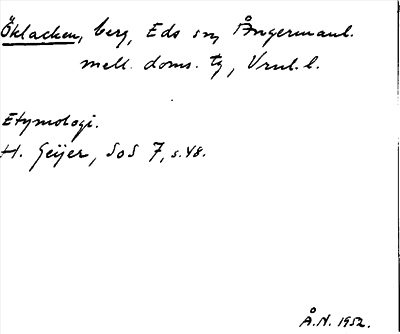 Öklacken, berg, Eds sn, Ångermanl.
mell. doms. tg, Vrnl. l.
Etymologi.
H. Geijer, SoS 7, s. 48.
Å.N. 1952.